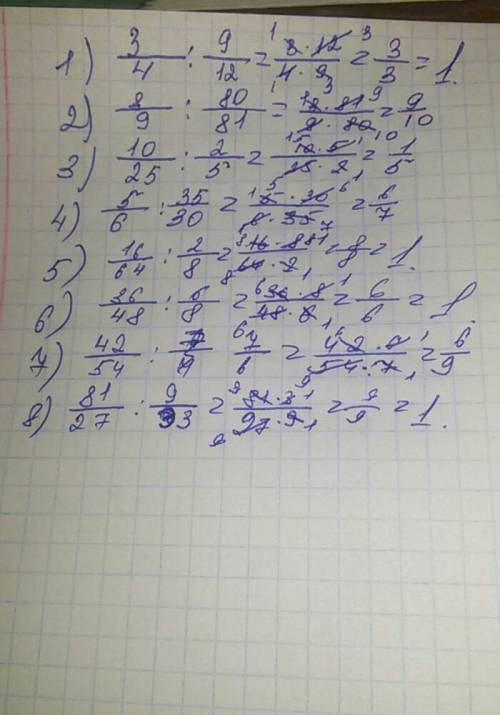 1) 3/4 : 9/12 = 3·12/4·9 = 3/3 = 1.
2) 8/9 : 80/81 = 8·81/9·80 = 9/10
3) 10/25 : 2/5 = 10·5/25·2 = 1/5
4) 5/6 : 35/30 = 5·30/6·35 = 6/7
5) 16/64 : 2/8 = 16·8/64·2 = 8/8 = 1.
6) 36/48 : 6/8 = 36·8/48·6 = 6/6 = 1.
7) 42/54 : 7/6 = 42·6/54·7 = 6/9
8) 81/27 : 9/3 = 81·3/27·9 = 9/9 = 1.